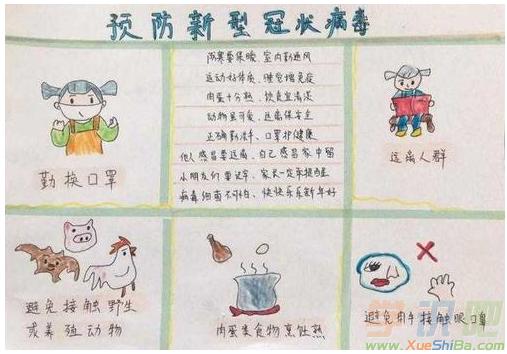 预防新型冠状病毒
防寒要保暖、室内勤通风
运动好体质、睡觉增免疫
肉蛋十分熟、饮食宜清淡
动物虽可爱、远离保安全
正确勤洗手、口罩护健康
他人感冒要远离、自己感冒家中留
小朋友们要记牢、家长一定来提醒
病毒细菌不可怕、快快乐乐新年好
勤换口罩
远离人群
避免接触野生
或养殖动物
肉蛋类食物烹饪熟
避免用手接触眼口鼻
学识吧
www.XueShiBa.com